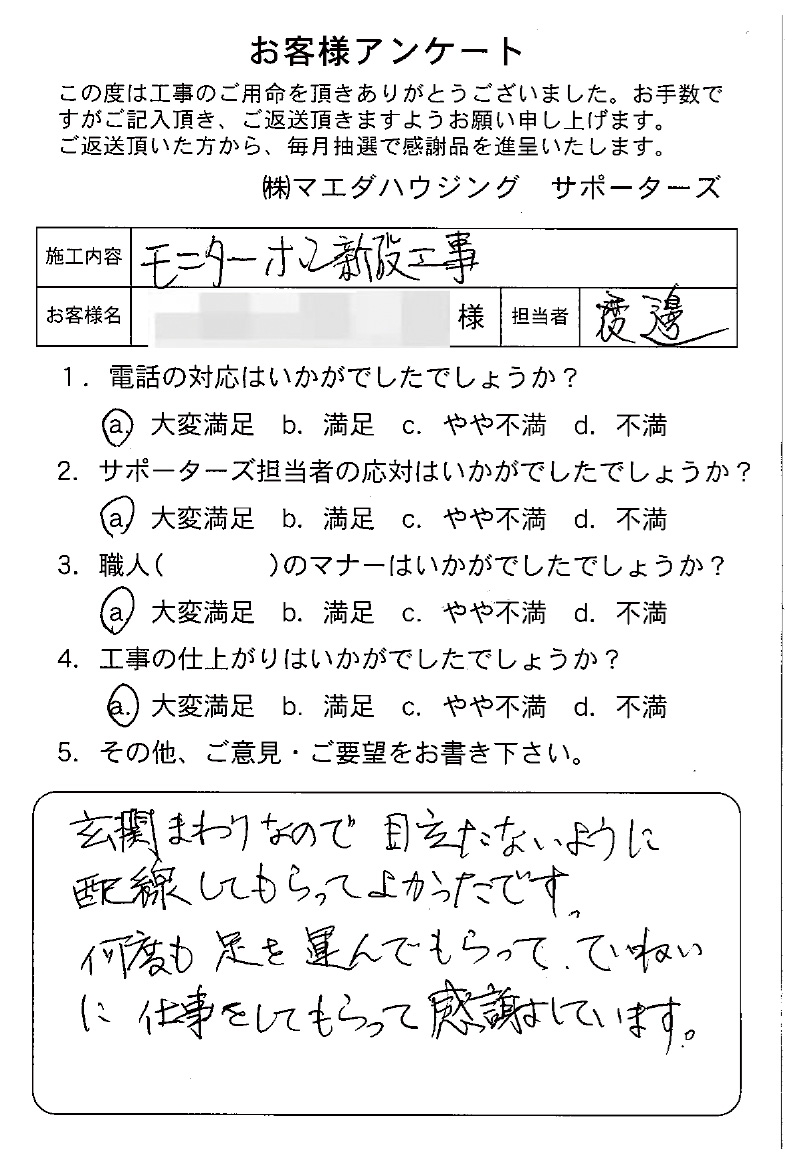 お客様アンケート
この度は工事のご用命を頂きありがとうございました。お手数で
すがご記入頂き、ご返送頂きますようお願い申し上げます。
ご返送頂いた方から、毎月抽選で感謝品を進呈いたします。
㈱マエダハウジング　サポーターズ
施工内容 モニターホン新設工事
お客様名 様 担当者 渡邊
1. 電話の対応はいかがでしたでしょうか?
a. 大変満足 b. 満足 c. やや不満 d. 不満
2. サポーターズ担当者の応対はいかがでしたでしょうか?
a. 大変満足 b. 満足 c. やや不満 d. 不満
3. 職人(　　　　)のマナーはいかがでしたでしょうか?
a. 大変満足 b. 満足 c. やや不満 d. 不満
4. 工事の仕上がりはいかがでしたでしょうか?
a. 大変満足 b. 満足 c. やや不満 d. 不満
5. その他、ご意見・ご要望をお書き下さい。
玄関まわりなので 目立たないように
配線してもらってよかったです。
何度も 足を 運んでもらって、ていねい
に 仕事をしてもらって感謝しています。